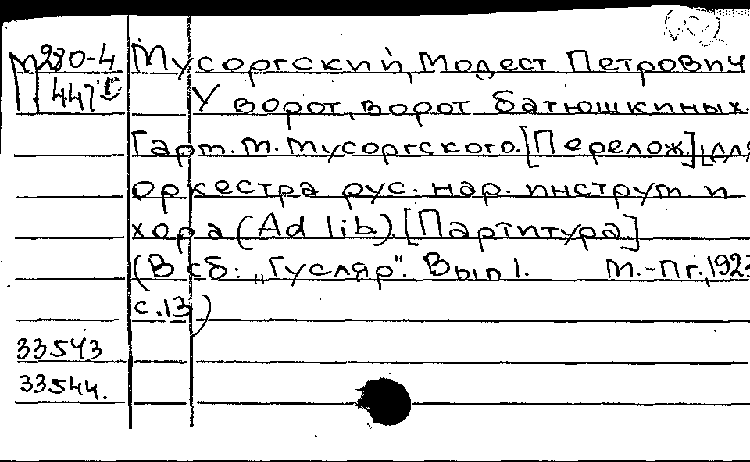 М280-4 Мусоргский, Модест Петрович
447 У ворот, ворот батюшкиных.
Гарм. М. Мусоргского. [Перелож] для
оркестра рус. нар. инструм и
хора (Ad lib). [Партитура]
(В сб: „Гусляр". Вып 1. М.-Пг., 1923
с. 13)
33543
33544.